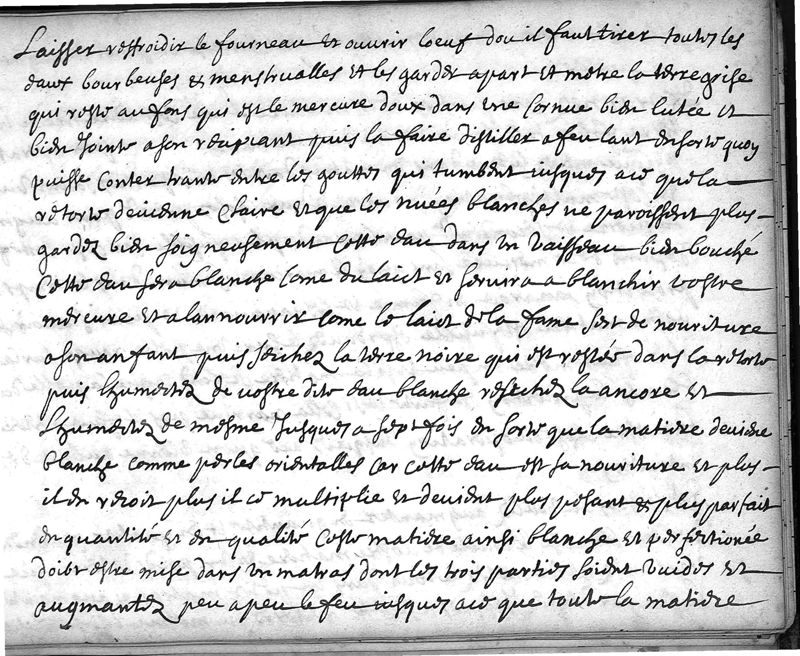 Laisser reffroidir le fourneau et ouvrir loeuf dou il faut tirer toutes les
eaux bourbeuses & menstrualles et les garder apart et metre la terre grise
qui reste au fons qui est le mercure doux dans une Cornue bien lutée et
bien Jointe a son recipiant puis la faire distiller a feu lant en sorte quoy
puisse Conter trante entre les gouttes qui tumbent iusques a ce que la
retorte deuienne Claire et que les nuées blanches ne paroissent plus
gardez bien soigneusement Cette eau dans un vaisseau bien bouché
Cette eau sera blanche Come du laict et seruira a blanchir vostre
mercure et a lannourrir Come le laict de la fame sert de nouriture
a son anfant puis seichez la terre noire qui est restée dans la retorte
puis Lhumectez de vostre dite eau blanche resechez la ancore et
Lhumectez de mesme Jusques a sept fois en sorte que la matiere deuiene
blanche comme perles orientalles Car Cette eau est sa nouriture et plus
il en recoit plus il ce multiplie et deuient plus pesant & plus parfait
en quantité et en qualité Ceste matiere ainsi blanche et perfectionée
doibt estre mise dans un matras dont les trois parties soient vuides et
augmantez peu a peu le feu iusques a ce que toute la matiere